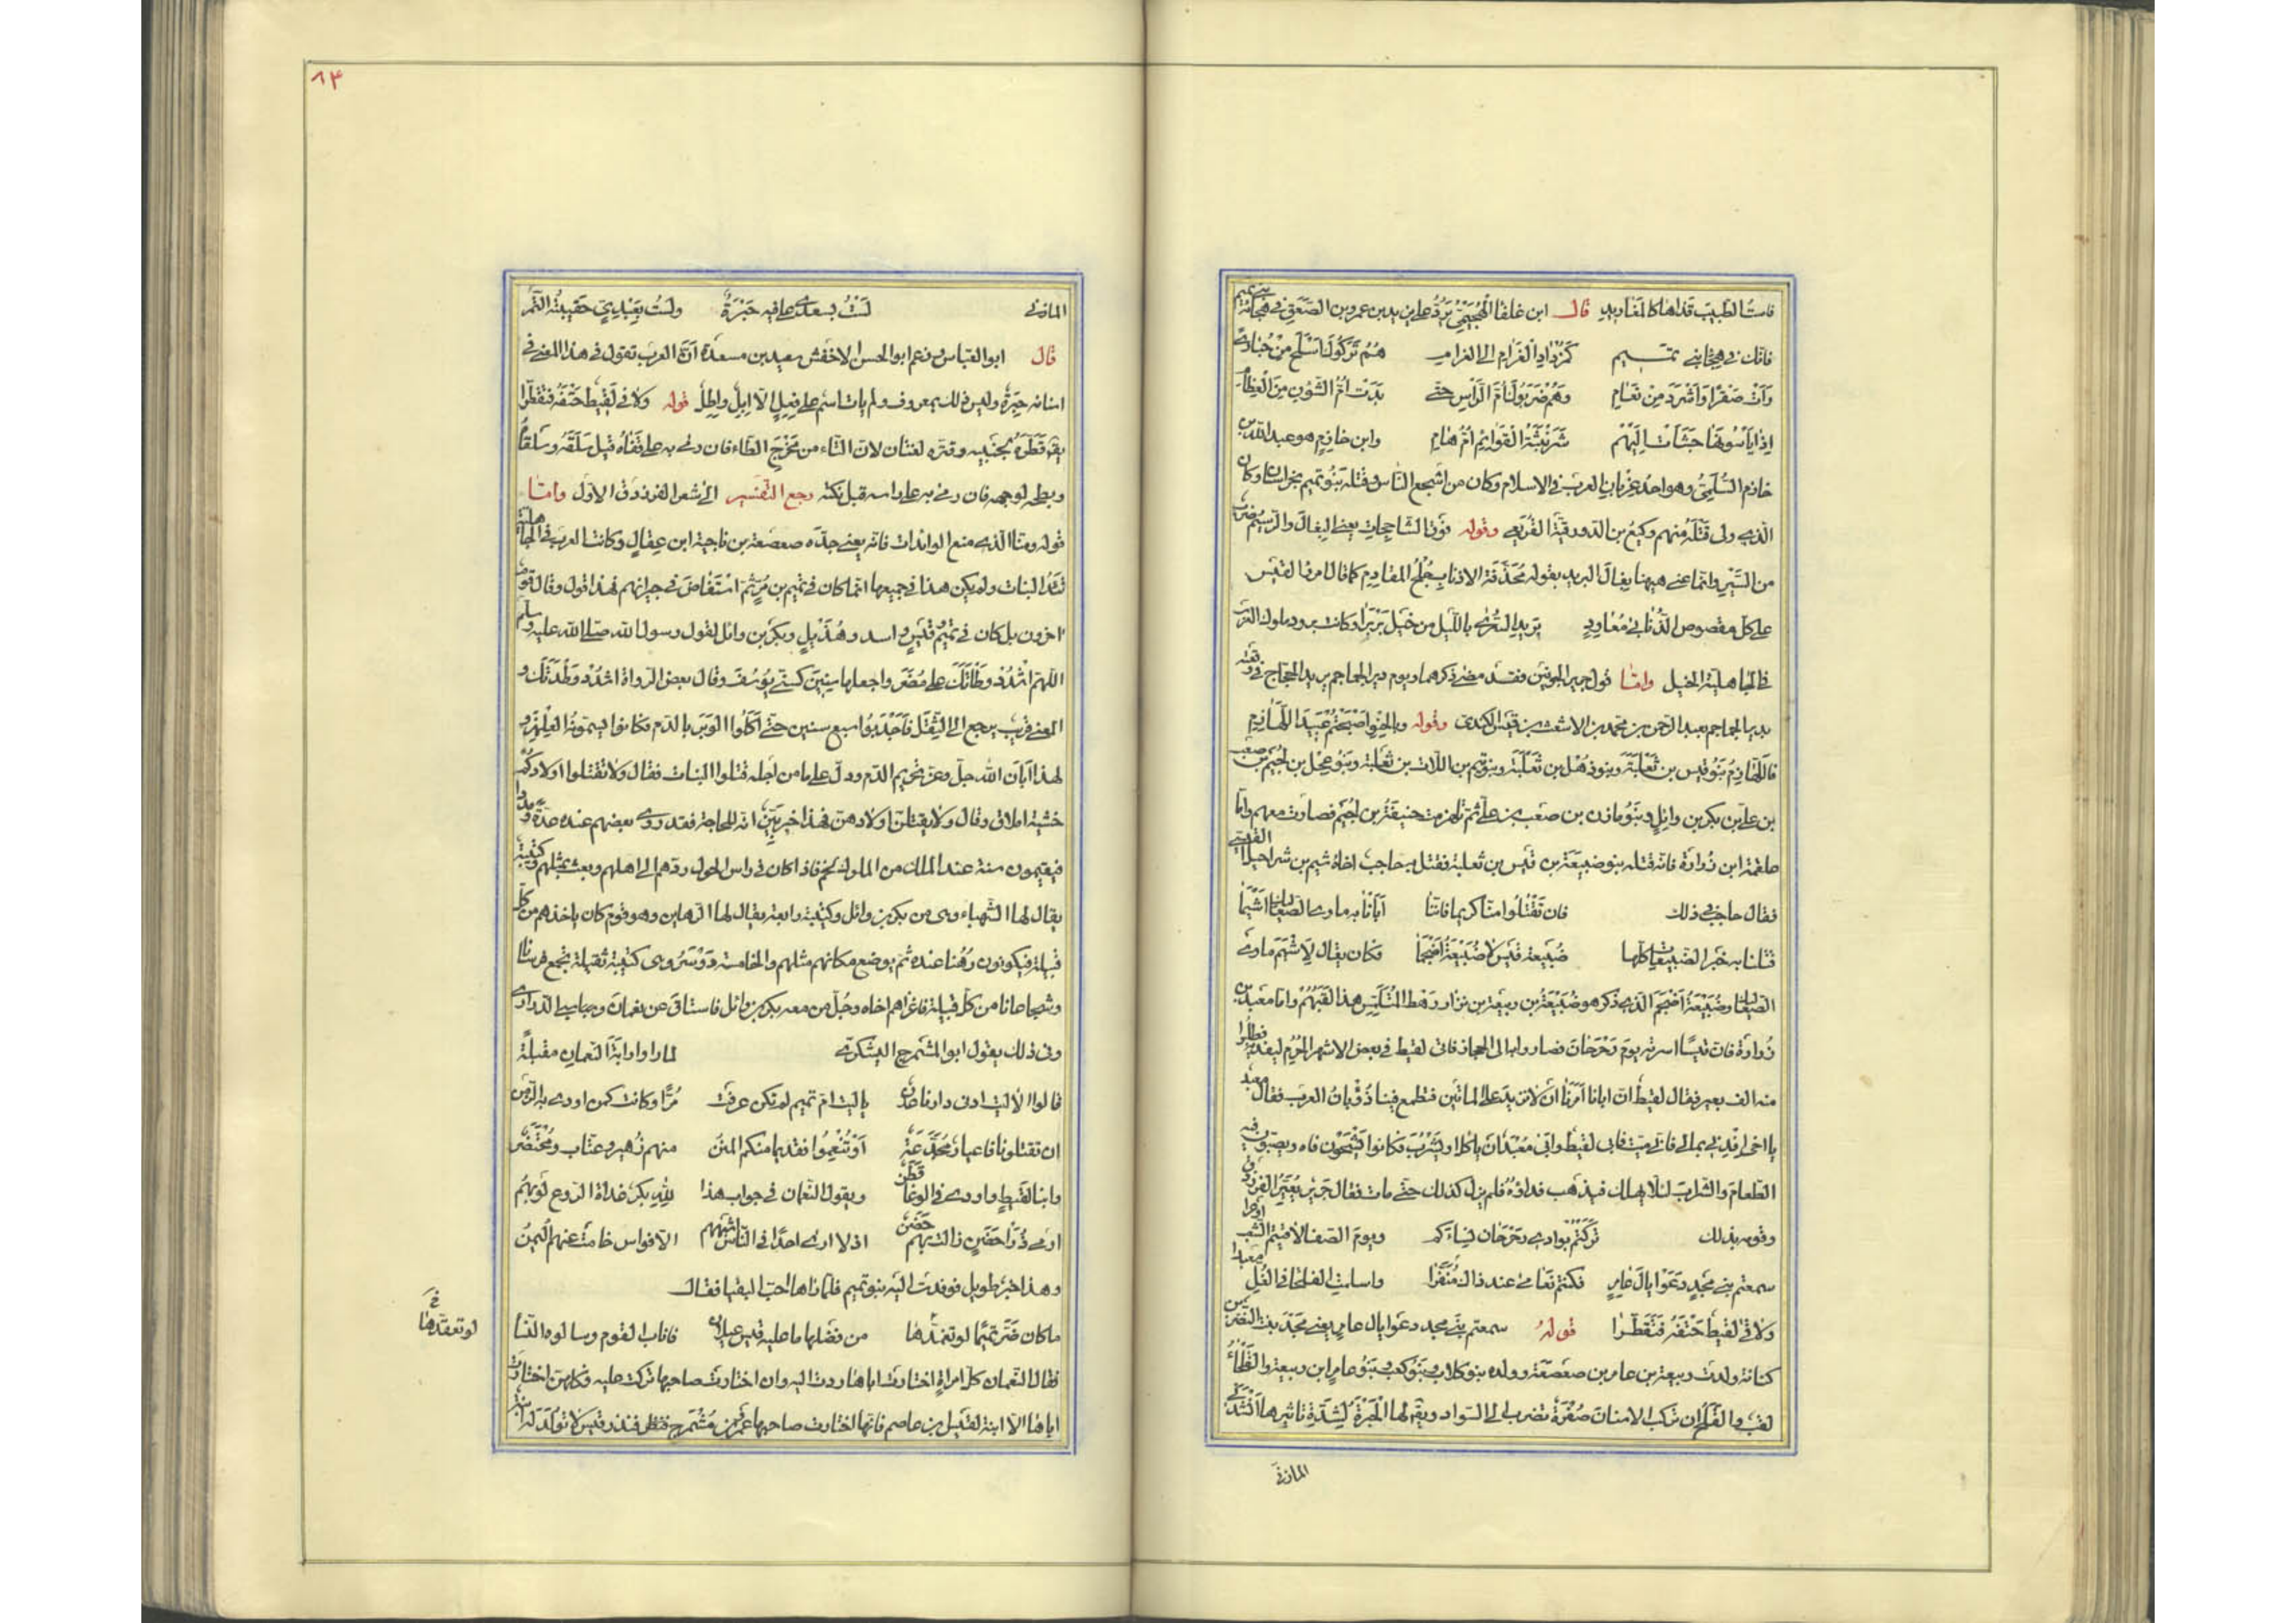 فاست الطبيب قذاها كالمغاريد قال ابن غلفا الهجيمي يرد على يزيد بن عمرو بن الصعق في هجائه بني تميم
فانك في هجاء بني تميم كمزداد الغرام الى الغرام هم تركوك اسلح من حبارى
رأت صقرا واشرد من نعام وهم ضربوك ام الراس حتى بدت ام الشؤن من العظام
اذا يأسونها جشأت اليهم شرنبثة القوايم ام هام وابن خازم هو عبد الله بن
خازم السلمي وهو احد غربان العرب في الاسلام وكان من اشجع الناس وقتله بنو تميم بخراسان وكان
الذي ولى قتله منهم وكيع بن الدورقية القريعي وقوله فوق الشاحجات يعني البغال والرسيم ضرب
من السير وانما عنى ههنا بغال البريد بقوله محذفة الاذناب جلح المقادم كما قال امرؤ القيس
على كل مقصوص الذنابى معاود بريد السرى بالليل من خيل بربرا وكانت برود ملوك العرب
في الجاهلية الخيل وامّا قول جرير الجونين فقد مضى ذكرهما ويوم دير الجماجم يريد الحجاج في وقعته
بدير الجماجم بعبد الرحمن بن محمد بن الاشعث بن قيس الكندي وقوله وبالحنو اصبحتم عبيد اللهازم
فاللهازم بنو قيس بن ثعلبة وبنو ذهل بن ثعلبة وبنو تيم اللات بن ثعلبة وبنو عجل بن لجيم بن صعب
بن علي بن بكر بن وائل وبنو مازن بن صعب بن علي ثم تلهزمت حنيفة بن لجيم فصارت معهم واما
علقمة ابن زرارة فانه قتله بنو ضبيعة بن قيس بن ثعلبة فقتل به حاجب اخاه اشيم بن شراحيل القيسي
فقال حاجب في ذلك فان تقتلوا منا كريما فاننا أبأنا به ماوى الصعاليك اشيما
قتلنا به خير الضبيعات كلها ضبيعة قيس لا ضبيعة اضجما فكان يقال لاشيم ماوى
الصعاليك وضبيعة اضجم الذي ذكر هو ضبيعة بن ربيعة بن نزار رهط المتلمس هذا لقبهم واما معبد بن
زرارة فان قيسا اسرته يوم رحرحان فصاروا به الى الحجاز فاتى لقيط في بعض الاشهر الحرم ليفديه فطلبوا
منه الف بعير فقال لقيط ان ابانا امرنا ان لا نزيد على المائتين فتطمع فينا ذؤبان العرب فقال معبد
يا اخي افدني بمالي فاني ميت فابى لقيط وابى معبد ان ياكل او يشرب فكانوا يشحون فاه ويصبون فيه
الطعام والشراب لئلا يهلك فيذهب فداؤه فلم يزل كذلك حتى مات فقال جرير يعير الفرزدق
وقومه بذلك تركتم بوادي رحرحان نساءكم ويوم الصفا لاقيتم الشعب اوعرا
سمعتم بني مجد دعوا يال عامر فكنتم نعاما عند ذاك منفرا واسلمت القلحاء في الغل معبدا
ولاقى لقيط حتفه فتقطرا قوله سمعتم بني مجد دعوا يال عامر يعني مجد بنت النضر بن
كنانة ولدت ربيعة بن عامر بن صعصعة وولده بنو كلاب وبنو كعب وبنو عامر ابن ربيعة والقلحاء
لقب والقلح ان تركب الاسنان صفرة تضرب الى السواد ويقال لها الحبرة لشدة تاثيرها انشدني
المازني
٨٣
المازني لست بسعدي على فيه حبرة ولست بعبدي حقيبته التمر
قال ابو العباس وزعم ابو الحسن الاخفش سعيد بن مسعدة ان العرب تقول في هذا المعنى في
اسنانه حبرة وليس ذلك بمعروف ولم يات اسم على فعل الا ابل واطل قوله ولاقى لقيط حتفه فتقطرا
يقال قطره لجنبيه وقتره لغتان لان التاء من مخرج الطاء فان رمى به على قفاه قيل سلقه وسلقاه
وبطحه لوجهه فان رمى به على راسه قيل نكته رجع التفسير الى شعر الفرزدق الاول وامّا
قوله ومنا الذي منع الوائدات فانه يعني جده صعصعة بن ناجية ابن عقال وكانت العرب في الجاهلية
تئد البنات ولم يكن هذا في جميعها انما كان في تميم بن مر ثم استفاض في جيرانهم فهذا قول وقال قوم
اخرون بل كان في تميم وقيس واسد وهذيل وبكر بن وائل لقول رسول الله صلى الله عليه وسلم
اللهم اشدد وطأتك على مضر واجعلها سنين كسني يوسف وقال بعض الرواة اشدد وطدتك و
المعنى قريب يرجع الى الثقل فأجدبوا سبع سنين حتى اكلوا الوبر بالدم فكانوا يسمونه العلهز و
لهذا ابان الله جل وعز تحريم الدم ودل على ما من اجله قتلوا البنات فقال ولا تقتلوا اولادكم
خشية املاق وقال ولا يقتلن اولادهن فهذا خبر بين انه للحاجة فقد روى بعضهم
فيقيمون سنة عند الملك من الملوك لخم فاذا كان في راس الحول ردهم الى اهلهم وبعث بمثلهم وكتيبة
يقال لها الشهباء وهى من بكر بن وائل وكتيبة رابعة يقال لها الرهاين وهو قوم كان ياخذهم من كل
قبيلة فيكونون رهنا عنده ثم يوضع مكانهم مثلهم والخامسة دوسر وهى كتيبة ثقيلة تجمع فرسانا
وشجاعانا من كل قبيلة فاغزاهم اخاه وجل من معه بكر بن وائل فاستاق عن نعمان وسبا الذراري
وفى ذلك يقول ابو المشمرج اليشكري لما راوا راية النعمان مقبلة
قالوا الا ليت ادنى دارنا عدن يا ليت ام تميم لم تكن عرفت مرا وكانت كمن اودى به الزمن
ان تقتلونا فاعيار مجدعة او تنعموا فقديما منكم المنن منهم زهير وعتاب ومحتضر
وابنا لقيط واودى في الوغا قطن ويقول النعمان في جواب هذا لله بكر غداة الروع لو بهم
ارمى ذرا حضن زالت بهم حضن اذ لا ارى احدا في الناس اشبههم الا فوارس خامت عنهم اليمن
وهذا خبر طويل فوفدت اليه بنو تميم فلما راها احب البقيا فقال
ما كان ضر تميما لو تغمدها من فضلها ما عليه قيس عيلان فاناب القوم وسالوه النسا
فقال النعمان كل امراة اختارت اباها ردت اليه وان اختارت صاحبها تركت عليه فكلهن اختارت
اباها الا ابنة لقيس بن عاصم فانها اختارت صاحبها عمرو بن مشمرج فنذر قيس لا تولد له ابنة
لو تعقدها